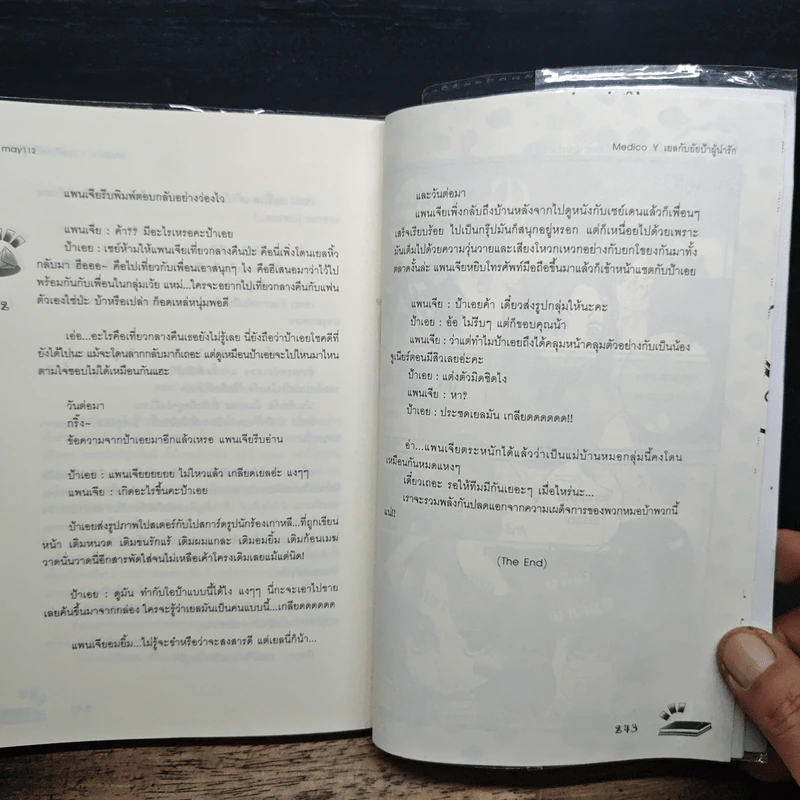 may112
แพนเจียรีบพิมพ์ตอบกลับอย่างว่องไว
แพนเจีย : ค้า?? มีอะไรเหรอคะป้าเอย
ป้าเอย : เซย์ห้ามให้แพนเจียเที่ยวกลางคืนปะ คือนี่เพิ่งโดนเยลหิ้ว
กลับมา ฮือออ~ คือไปเที่ยวกับเพื่อนเอาสนุกๆ ไง คือฮีเสนอมาว่าไว้ไป
พร้อมกันกับเพื่อนในกลุ่มเว้ย แหม่...ใครจะอยากไปเที่ยวกลางคืนกับแฟน
ตัวเองใช่ปะ บ้าหรือเปล่า ก็อดเหล่หนุ่มพอดี
เอ่อ...อะไรคือเที่ยวกลางคืนเธอยังไม่รู้เลย นี่ยังถือว่าป้าเอยโชคดีที่
ยังได้ไปนะ แม้จะโดนลากกลับมาก็เถอะ แต่ดูเหมือนป้าเอยจะไปไหนมาไหน
ตามใจชอบไม่ได้เหมือนกันแฮะ
วันต่อมา
กริ๊ง~
ข้อความจากป้าเอยมาอีกแล้วเหรอ แพนเจียรีบอ่าน
ป้าเอย : แพนเจียยยยยย ไม่ไหวแล้ว เกลียดเยลอ่ะ แงๆๆ
แพนเจีย : เกิดอะไรขึ้นคะป้าเอย
ป้าเอยส่งรูปภาพโปสเตอร์กับโปสการ์ดรูปนักร้องเกาหลี...ที่ถูกเขียน
หน้า เติมหนวด เติมขนรักแร้ เติมผมแกละ เติมอมยิ้ม เติมก้อนเมฆ
วาดนั่นวาดนี่อีกสารพัดใส่จนไม่เหลือเค้าโครงเดิมเลยแม้แต่นิด!
ป้าเอย : ดูมัน ทำกับโอป้าแบบนี้ได้ไง แงๆๆ นี่กะจะเอาไปขาย
เลยค้นขึ้นมาจากกล่อง ใครจะรู้ว่าเยลมันเป็นคนแบบนี้...เกลียดดดดดด
แพนเจียอมยิ้ม...ไม่รู้จะขำหรือว่าจะสงสารดี แต่เยลนี่ก็น้า...
Medico Y เยลกับยัยป้าผู้น่ารัก
และวันต่อมา
แพนเจียเพิ่งกลับถึงบ้านหลังจากไปดูหนังกับเซย์เดนแล้วก็เพื่อนๆ
เสร็จเรียบร้อย ไปเป็นกรุ๊ปมันก็สนุกอยู่หรอก แต่ก็เหนื่อยไปด้วยเพราะ
มันเต็มไปด้วยความวุ่นวายและเสียงโหวกเหวกอย่างกับยกโขยงกันมาทั้ง
ตลาดงั้นล่ะ แพนเจียหยิบโทรศัพท์มือถือขึ้นมาแล้วก็เข้าหน้าแชตกับป้าเอย
แพนเจีย : ป้าเอยค้า เดี๋ยวส่งรูปกลุ่มให้นะคะ
ป้าเอย : อ้อ ไม่รีบๆ แต่ก็ขอบคุณน้า
แพนเจีย : ว่าแต่ทำไมป้าเอยถึงได้คลุมหน้าคลุมตัวอย่างกับเป็นน้อง
จูเนียร์ตอนมีสิวเลยอ่ะคะ
ป้าเอย : แต่งตัวมิดชิดไง
แพนเจีย : หา?
ป้าเอย : ประชดเยลมัน เกลียดดดดดด!!
อ่า...แพนเจียตระหนักได้แล้วว่าเป็นแม่บ้านหมอกลุ่มนี้คงโดน
เหมือนกันหมดแหงๆ
เดี๋ยวเถอะ รอให้ทีมมีกันเยอะๆ เมื่อไหร่นะ...
เราจะรวมพลังกันปลดแอกจากความเผด็จการของพวกหมอบ้าพวกนี้
แน่!!
(The End)
243